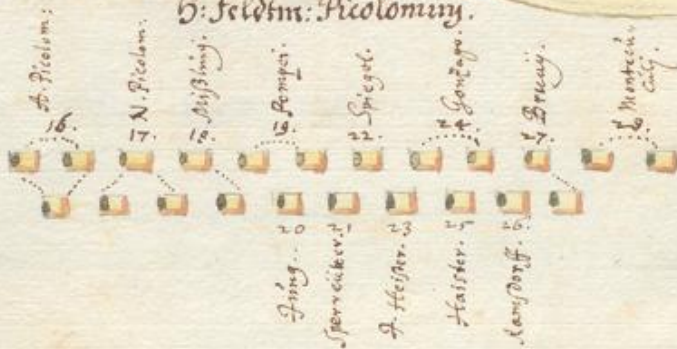 H: Feldtm: Picolominy.
A. Picolom:
16.
N. Picolom.
17.
Mißling.
18.
Pompei.
19.
Spiegel.
22.
Gonzago.
24.
Bruay.
27.
Montecu.
culj.
28
20
Jüng..
21
Sperreüter.
23
J. Heister.
25
Haister.
26.
Ramsdorff.